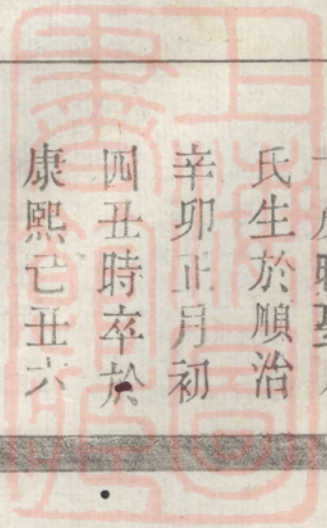 氏生於順治
辛卯正月初
四丑時卒於
康熙己丑六